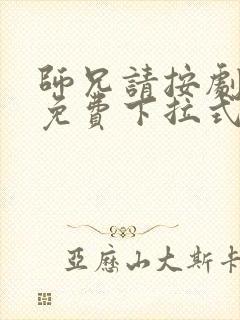 師兄請按劇
免費下拉式
亞歷山大斯卡